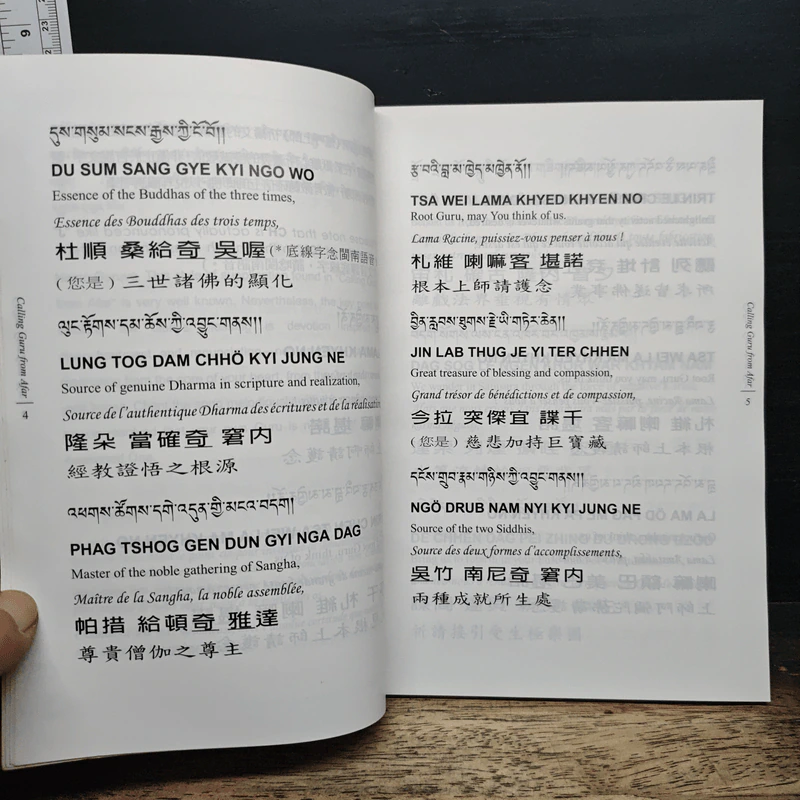 དུས་གསུམ་སངས་རྒྱས་ཀྱི་ངོ་བོ།།
DU SUM SANG GYE KYI NGO WO
Essence of the Buddhas of the three times,
Essence des Bouddhas des trois temps,
杜順 桑給奇 吳喔(*底線字念閩南語音
(您是) 三世諸佛的顯化
ལུང་རྟོགས་དམ་ཆོས་ཀྱི་འབྱུང་གནས།།
LUNG TOG DAM CHHÖ KYI JUNG NE
Source of genuine Dharma in scripture and realization,
Source de l'authentique Dharma des écritures et de la réalisation
隆朵 當確奇 窘内
經教證悟之根源
འཕགས་ཚོགས་དགེ་འདུན་གྱི་མངའ་བདག།
PHAG TSHOG GEN DUN GYI NGA DAG
Master of the noble gathering of Sangha,
Maître de la Sangha, la noble assemblée,
帕措 給頓奇 雅達
尊貴僧伽之尊主
Calling Guru from Afar
4
རྩ་བའི་བླ་མ་ཁྱེད་མཁྱེན་ནོ།།
TSA WEI LAMA KHYED KHYEN NO
Root Guru, may You think of us.
Lama Racine, puissiez-vous penser à nous !
札維 喇嘛客 堪諾
根本上師請護念
བྱིན་རླབས་ཐུགས་རྗེ་ཡི་གཏེར་ཆེན།།
JIN LAB THUG JE YI TER CHHEN
Great treasure of blessing and compassion,
Grand trésor de bénédictions et de compassion,
今拉 突傑宜 諜千
(您是) 慈悲加持巨寶藏
དངོས་གྲུབ་རྣམ་གཉིས་ཀྱི་འབྱུང་གནས།།
NGÖ DRUB NAM NYI KYI JUNG NE
Source of the two Siddhis,
Source des deux formes d'accomplissements,
吳竹 南尼奇 窘内
兩種成就所生處
Calling Guru from Afar
5